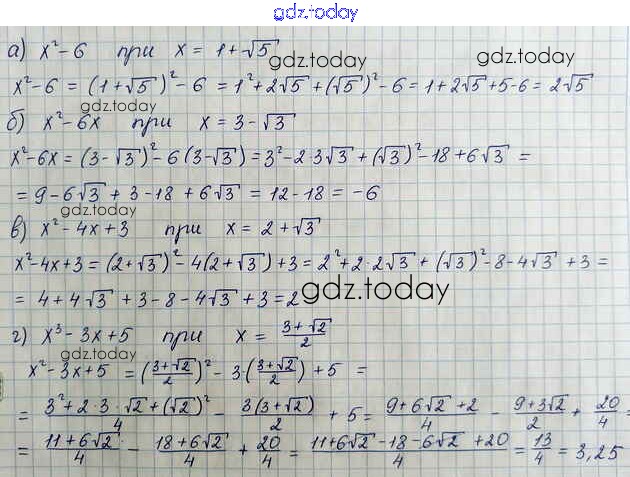 gdz.today
а) x² - 6 при x = 1 + √5
gdz.today
gdz.today
x² - 6 = (1 + √5)² - 6 = 1² + 2√5 + (√5)² - 6 = 1 + 2√5 + 5 - 6 = 2√5
gdz.today
б) x² - 6x при x = 3 - √3
x² - 6x = (3 - √3)² - 6(3 - √3) = 3² - 2 3√3 + (√3)² - 18 + 6√3 =
= 9 - 6√3 + 3 - 18 + 6√3 = 12 - 18 = -6
gdz.today
в) x² - 4x + 3 при x = 2 + √3
x² - 4x + 3 = (2 + √3)² - 4(2 + √3) + 3 = 2² + 2·2√3 + (√3)² - 8 - 4√3 + 3 =
= 4 + 4√3 + 3 - 8 - 4√3 + 3 = 2
gdz.today
г) x³ - 3x + 5 при x = (3 + √2)/2
gdz.today
x² - 3x + 5 = ((3 + √2)/2)² - 3·((3 + √2)/2) + 5 =
= (3² + 2·3·√2 + (√2)²)/4 - 3(3 + √2)/2 + 5 = (9 + 6√2 + 2)/4 - (9 + 3√2)/2 + 20/4 =
= (11 + 6√2)/4 - (18 + 6√2)/4 + 20/4 = (11 + 6√2 - 18 - 6√2 + 20)/4 = 13/4 = 3,25
gdz.today
gdz.today